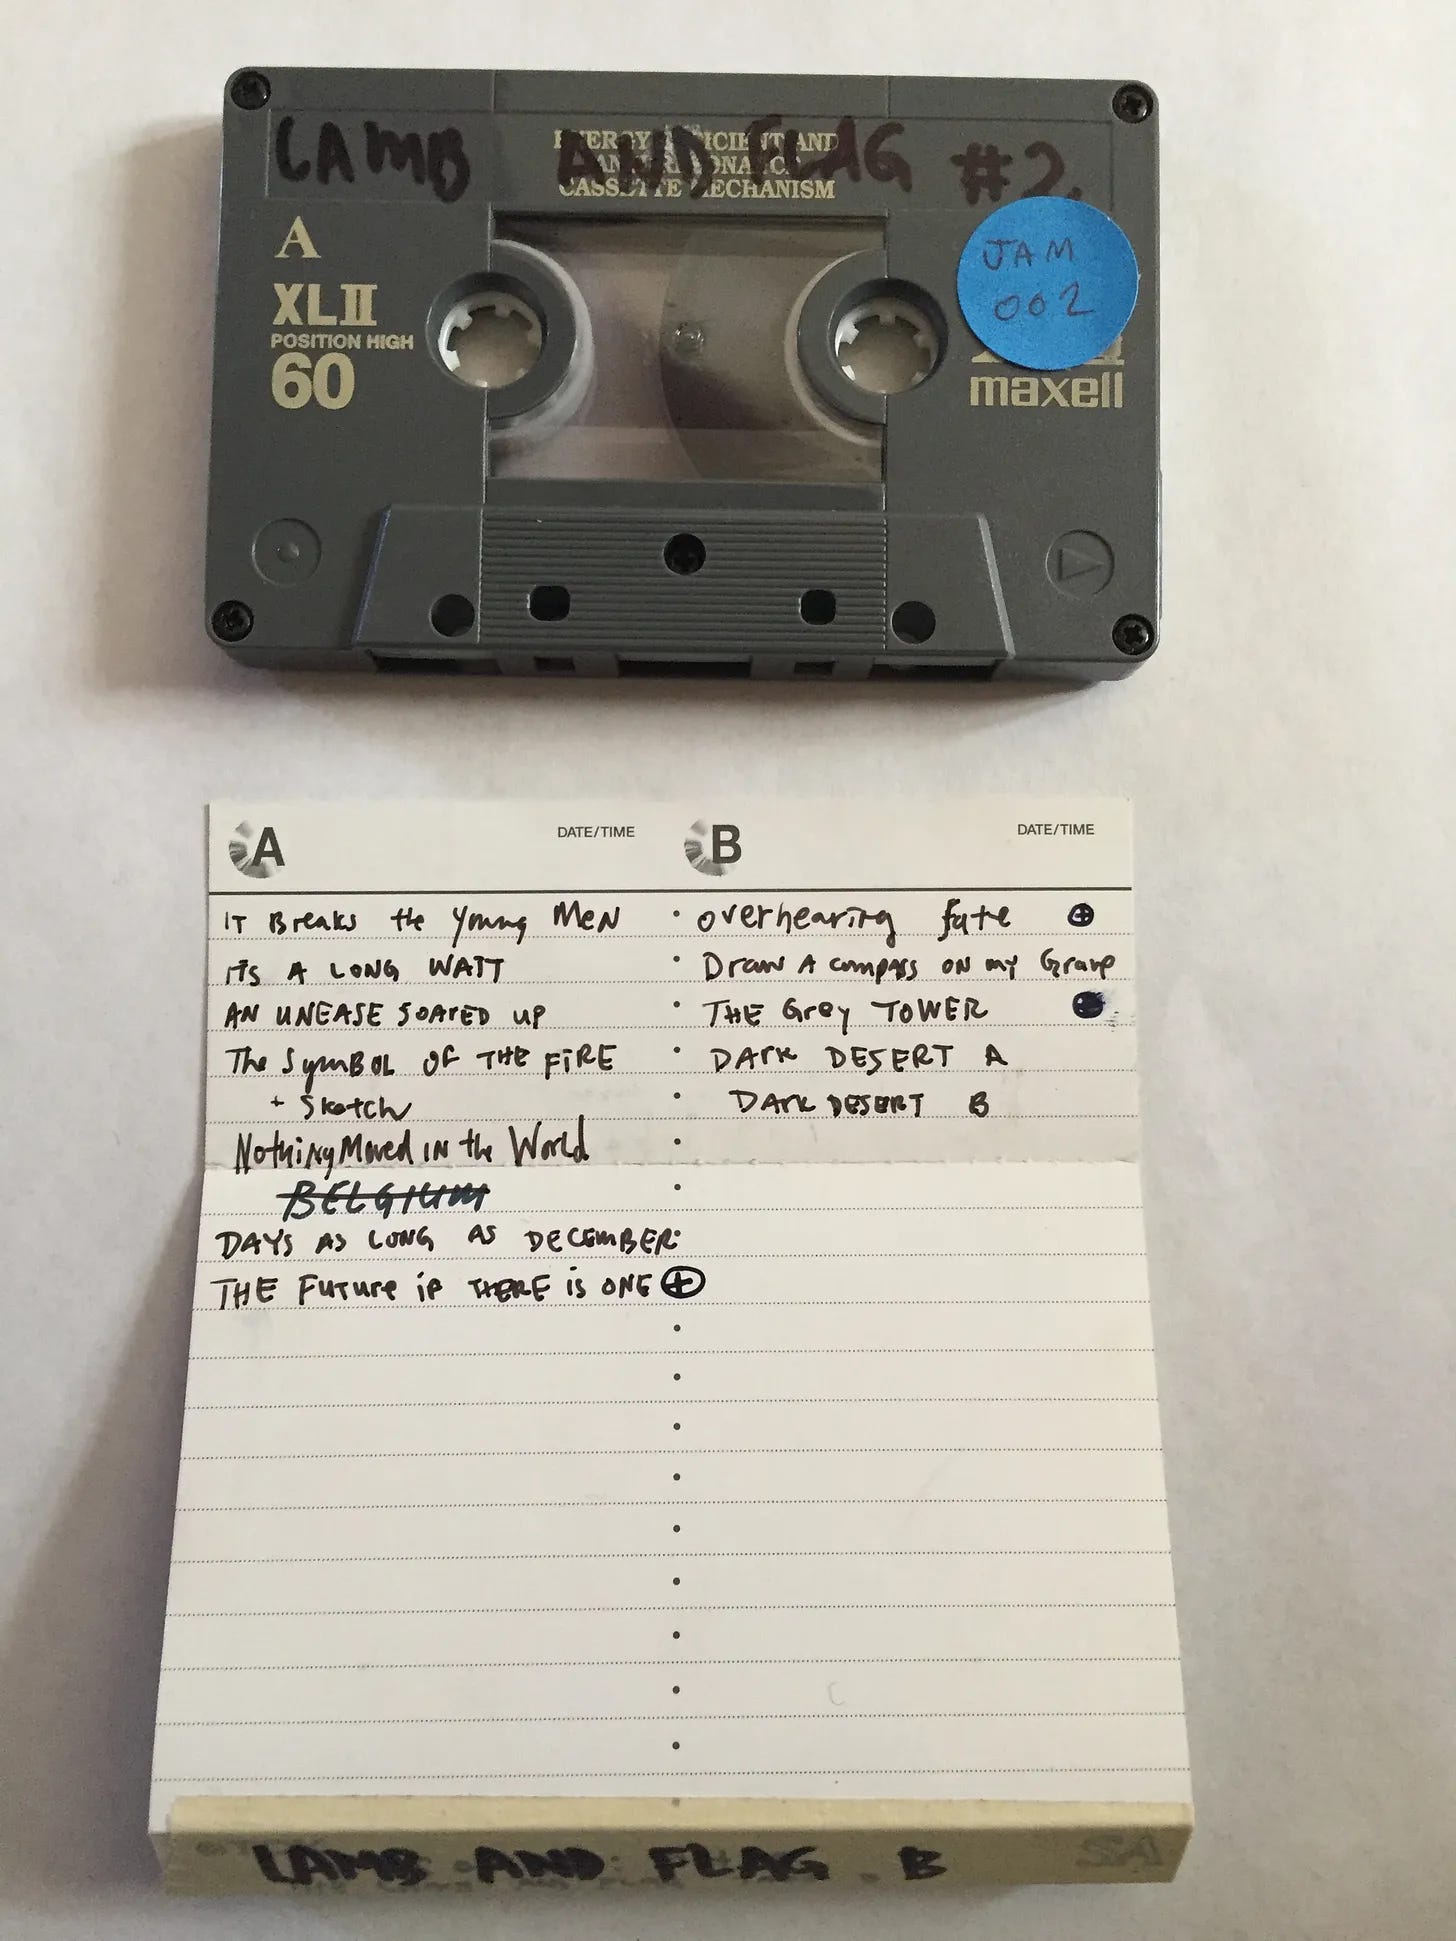 LAMB AND FLAG #2.
CASSETTE MECHANISM
A
XLII
POSITION HIGH
60
JAM
002
maxell
A DATE/TIME B DATE/TIME
IT Breaks the Young MeN
ITS A LONG WAIT
AN UNEASE SOARED UP
The SymBOL OF THE FIRE
+ Sketch
Nothing Moved IN the World
BELGIUM
DAYS AS LONG AS DECEMBER
THE FUTUre iF THERE is ONE
overhearing fate
Draw A compass on my Grave
THE Grey TOWER
DArk DESERT A
DArk DESERT B
LAMB AND FLAG . B
SA